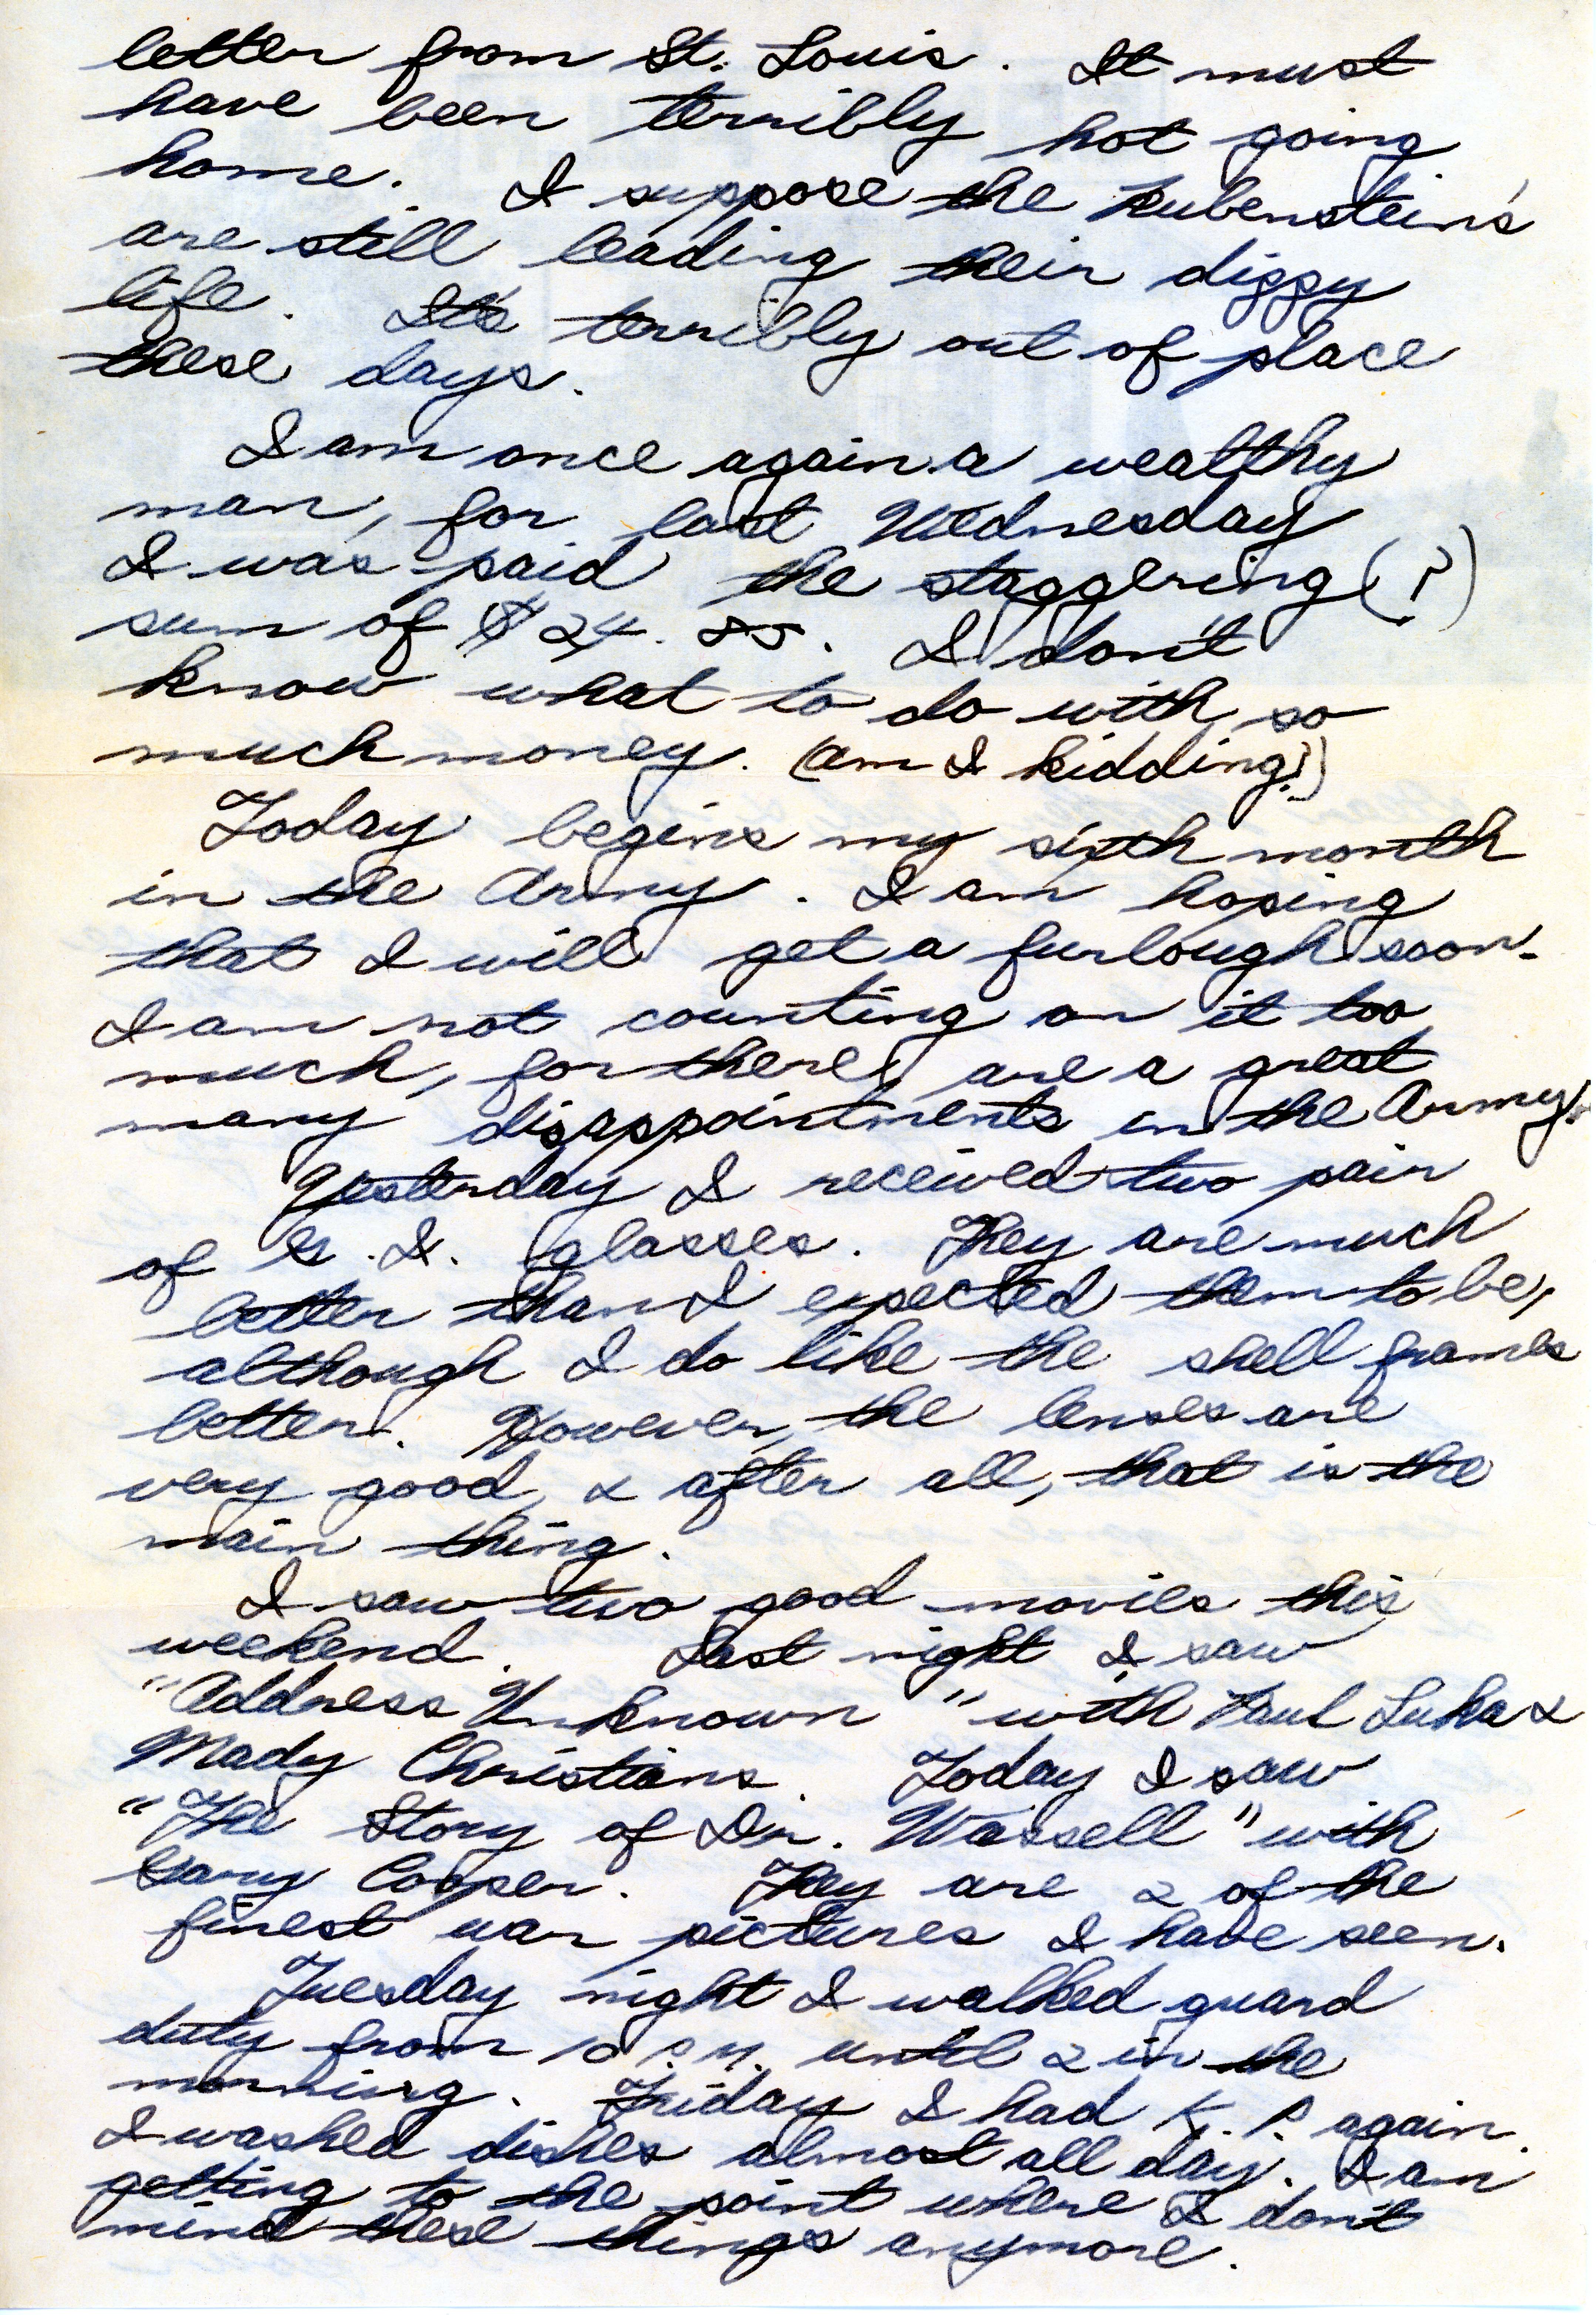 letter from St. Louis. It must
have been terribly hot going
home. I suppose the Rubenstein's
are still leading their dizzy
life. It's terribly out of place
these days.
I am once again a wealthy
man, for last Wednesday
I was paid the staggering (?)
sum of $24.85. I don't
know what to do with so
much money. (Am I kidding?)
Today begins my sixth month
in the Army. I am hoping
that I will get a furlough soon.
I am not counting on it too
much, for there are a great
many disappointments in the Army.
Yesterday I received two pair
of G.I. glasses. They are much
better than I expected them to be,
although I do like the shell frames
better. However, the lenses are
very good, & after all, that is the
main thing.
I saw two good movies this
weekend. Last night I saw
"Address Unknown" with Paul Lukas &
Mady Christians. Today I saw
"The Story of Dr. Wassell" with
Gary Cooper. They are 2 of the
finest war pictures I have seen.
Tuesday night I walked guard
duty from 10 P.M. until 2 in the
morning. Friday I had K.P. again.
I washed dishes almost all day. I am
getting to the point where I don't
mind these things anymore.